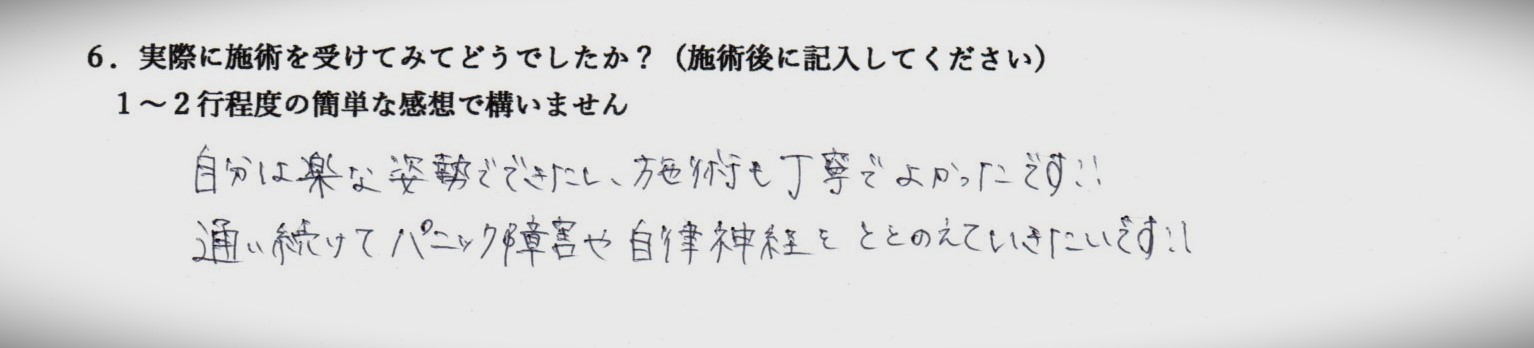 6．実際に施術を受けてみてどうでしたか？（施術後に記入してください）
1～2行程度の簡単な感想で構いません
自分は楽な姿勢でできたし、施術も丁寧でよかったです!!
通い続けてパニック障害や自律神経をととのえていきたいです!!